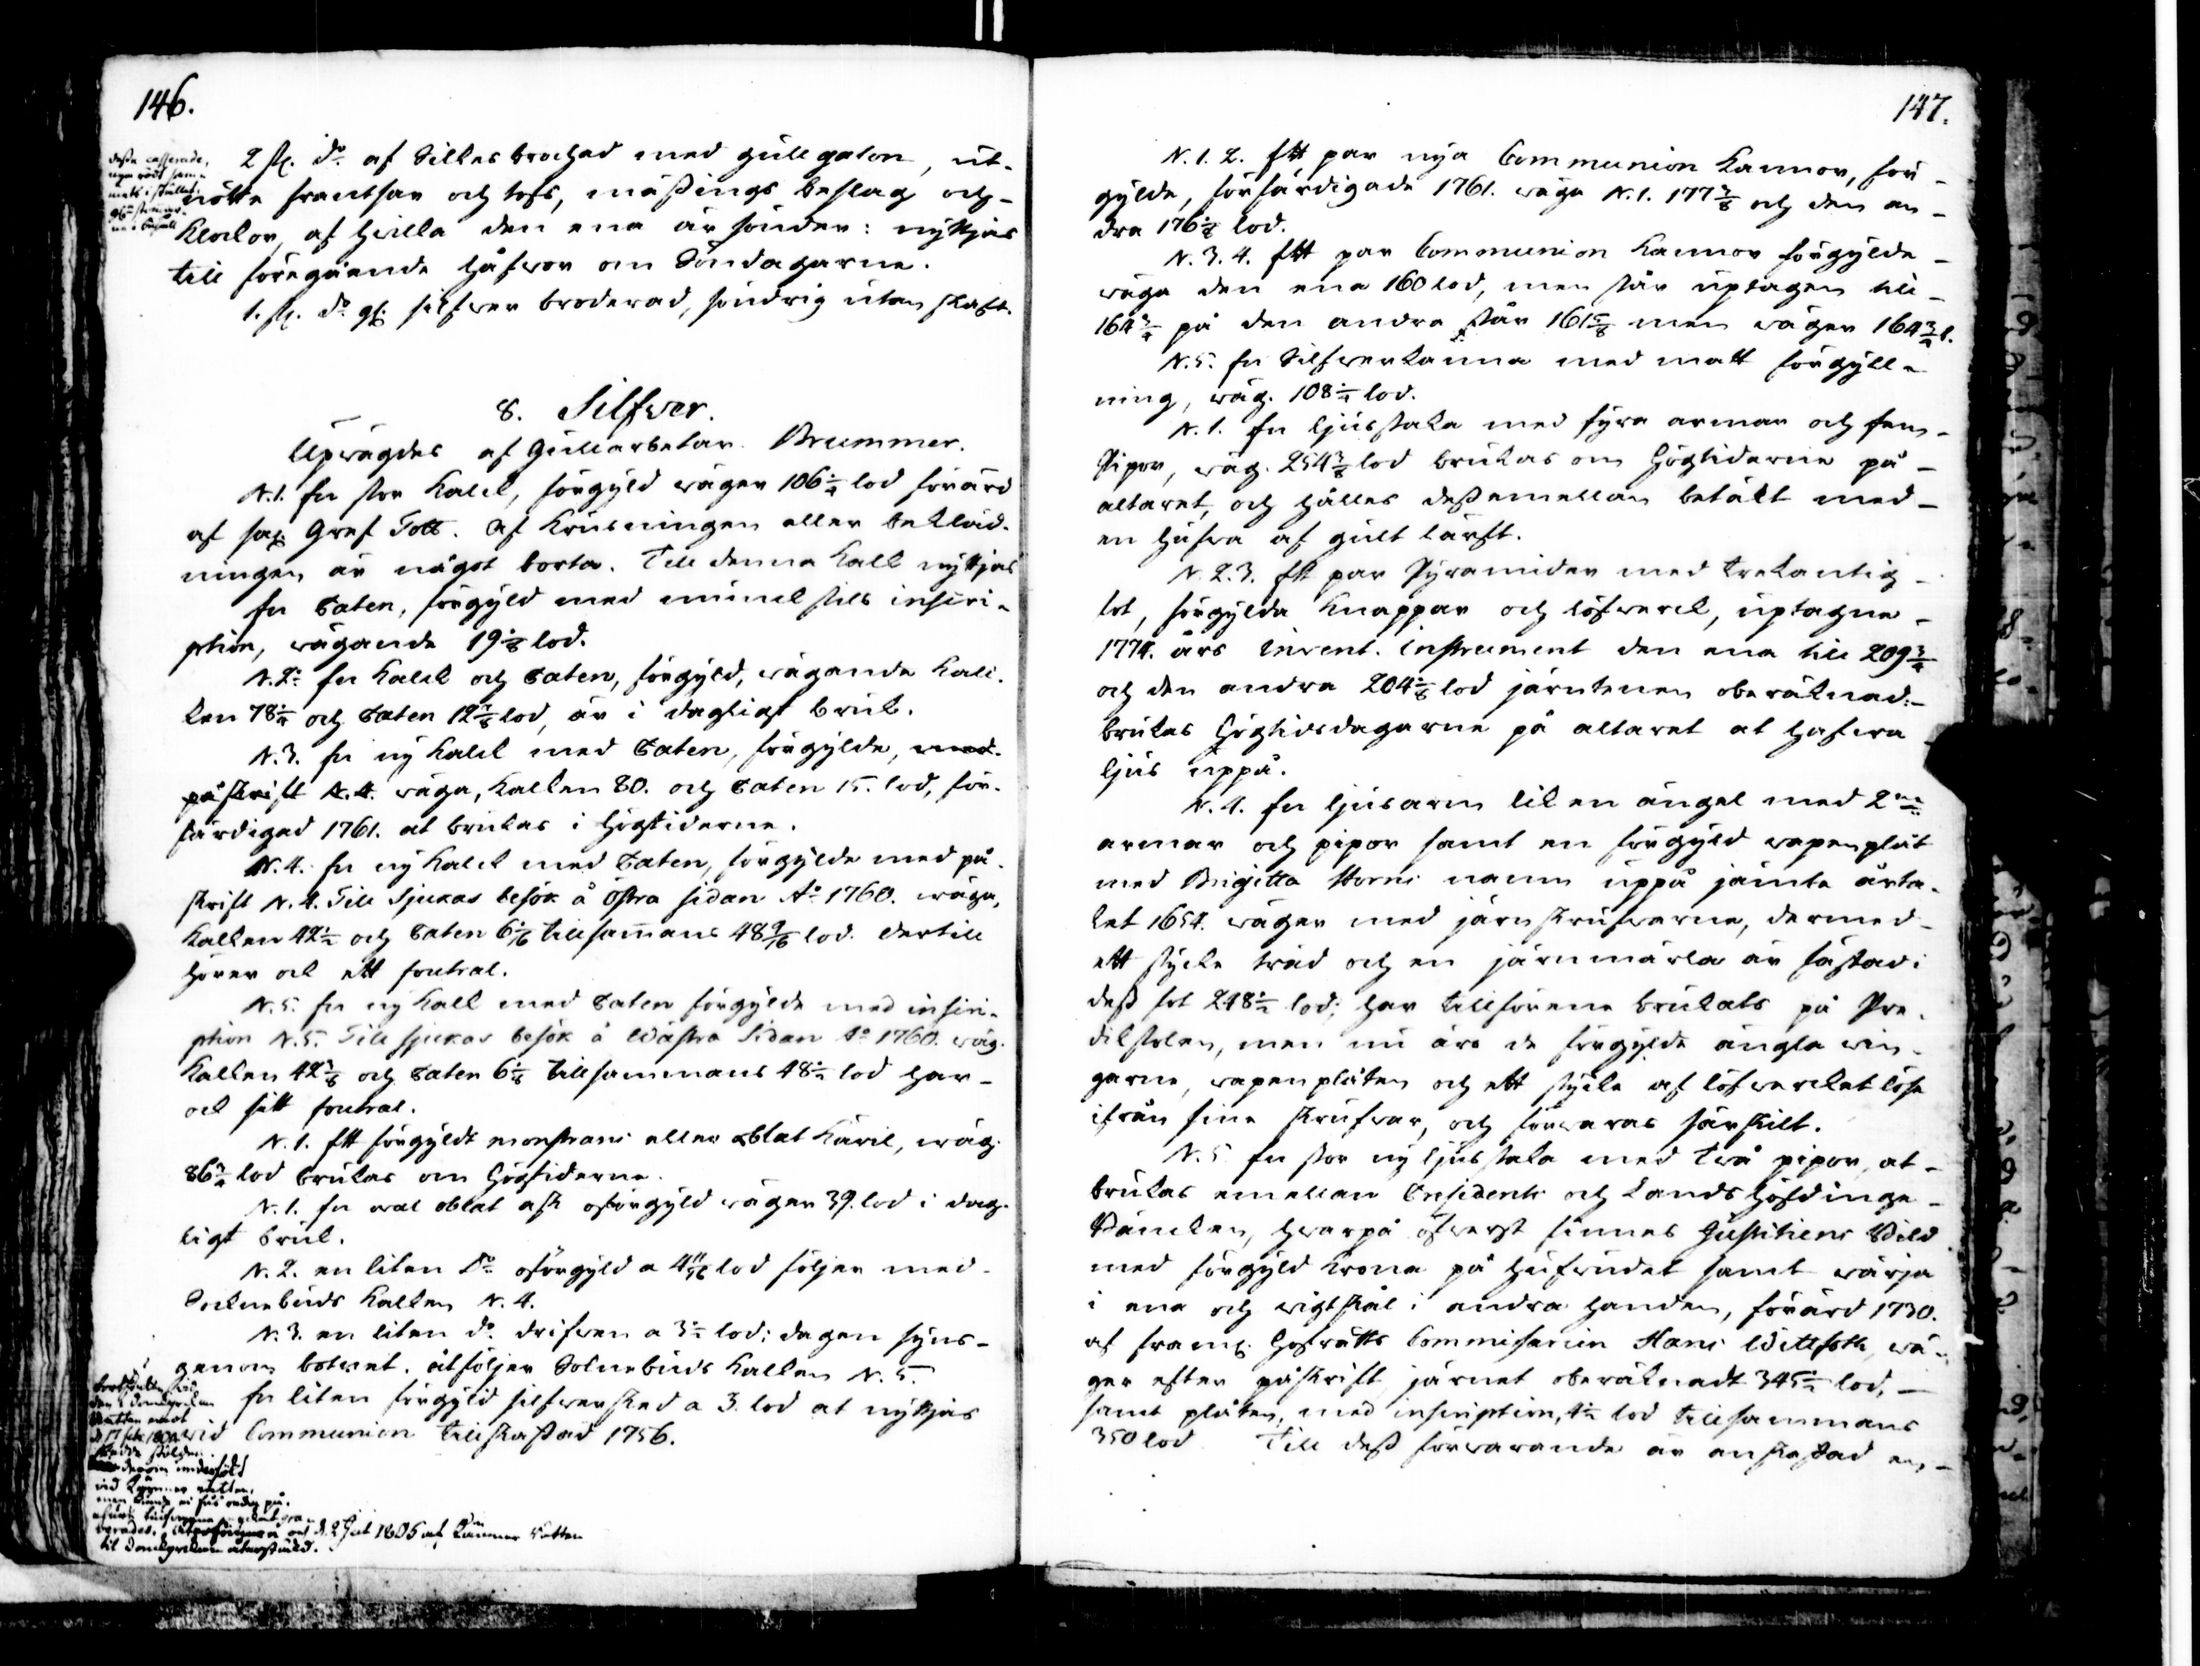 146.
2 st. do af Silkesbrochad med gullgalon, ut-
nötte frantsar och tofs, mäßings beslag och
Klockor, af hwilka den ena är sönder: nyttjas
till föregående håfwor om Söndagarne.
1. st. do gl. silfwer broderad, söndrig utan skaft.
deße casserade,
nya rödt sam-
mets i stället.
8. Silfwer.
Upwägdes af Gullarbetar Brummer.
N.1. En stor Kalck, förgyld wäger 106 1/4 lod förärd
af sal. Gref Tott. Af Krusningen eller bekläd-
ningen är något borta. Till denna Kalk nyttjas
En Paten, förgyld med munckstils inscri-
ption, wägande 19 1/8 lod.
N.2. En Kalck och Paten, förgyld, wägande Kal-
ken 78 1/4 och Paten 12 7/8 lod, är i dagligt bruk.
N.3. En ny Kalck med Paten, förgylde, med
påskrift N.4. wäga, Kalken 80. och Paten 15. lod, för-
färdigad 1761. at brukas i Högtiderne.
N.4. En ny Kalck med Paten, förgylde med på-
skrift N.4. Till Sjukas besök å Östra sidan Ao 1760. wäga,
Kalken 42 1/2 och Paten 6 1/16 tillsammans 48 9/16 lod. dertill
hörer ock ett foutral.
N.5. En ny Kalk med Paten förgylde med inscri-
ption N.5. Till sjukas besök å Wästra Sidan Ao 1760. wäg.
Kalken 42 3/8 och Paten 6 1/8 tillsammans 48 1/2 lod har
ock sitt foutral.
N.1. Ett förgyldt monstrans eller oblat Käril, wäg.
86 3/4 lod brukas om Högtiderne.
N.1. En oval oblat ask oförgyld wäger 39. lod i dag-
ligt bruk.
N.2. en liten Do oförgyld a 4 11/16 lod följer med
Socknebuds Kalken N.4.
N.3. en liten do drifwen a 3 1/2 lod; dagen synes
genom botnet. åtföljer Soknebuds Kalken N.5.
En liten förgyld silfwersked a 3. lod at nyttjas
wid Communion tillskaffad 1756.
bortstulen wid
den i Domkyrkan
Natten emot
vid Kämners rätten,
d. 2 Juli 1805 af Kämners Rätten
til Domkyrkan återstäld.
147.
N.1.2. Ett par nya Communion Kannor, för-
gylde, förfärdigade 1761. wäga N.1. 177 3/8 och den an-
dra 176 1/4 lod.
N.3.4. Ett par Communion Kannor förgylde
wäga den ena 160 lod, men står uptagen till
164 3/4 på den andra står 161 5/8 men wäger 164 3/4 l.
N.5. En Silfwerkanna med matt förgyll-
ning, wäg. 108 1/4 lod.
N.1. En ljusstaka med fyra armar och fem
Pipor, wäg. 254 3/8 lod brukas om Högtiderne på
altaret, och hålles deßemellan betäkt med
en hufwa af gult lärft.
N.2.3. Ett par Pyramider med trekantig
fot, förgylda Knappar och löfwerck, uptagne
1774. års Invent. Instrument den ena till 209 3/4
och den andra 204 1/8 lod järntenen oberäknad:
brukas Högtidsdagarne på altaret at hafwa
ljus uppå.
N.4. En ljusarm lik en ängel med 2ne
armar och pipor samt en förgyld wapenplåt
med Brigitta Horns namn uppå jämte årta-
let 1654. wäger med järnskrufwarne, dermed
ett stycke träd och en järnmärla är fästad i
deß fot 248 1/2 lod; har tillförene brukats på Pre-
dikstolen, men nu äro de förgylde ängla win-
garne, wapenplåten och ett stycke af löfwercket löse
ifrån sine skrufwar, och förwaras särskilt.
N.5. En stor ny ljusstaka med twå pipor, at
brukas emellan Presidents och Landshöfdinge
Bäncken, hwarpå öfwerst finnes Justitiens Bild
med förgyld Krona på hufwudet samt wärja
i ena och wigtskål i andra handen, förärd 1730.
af framl. Hofrätts Commissarien Hans Wittfoth, wä-
ger efter påskrift järnet oberäknadt 345 1/2 lod,
samt plåten, med inscription, 4 1/2 lod tillsammans
350 lod Till deß förwarande är anskaffad en